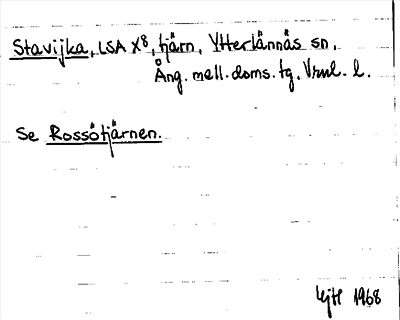 Stavijka, LSA X8, tjärn, Ytterlännäs sn,
Ång. mell. doms. tg, Vrnl. l.
Se Rossötjärnen.
1968